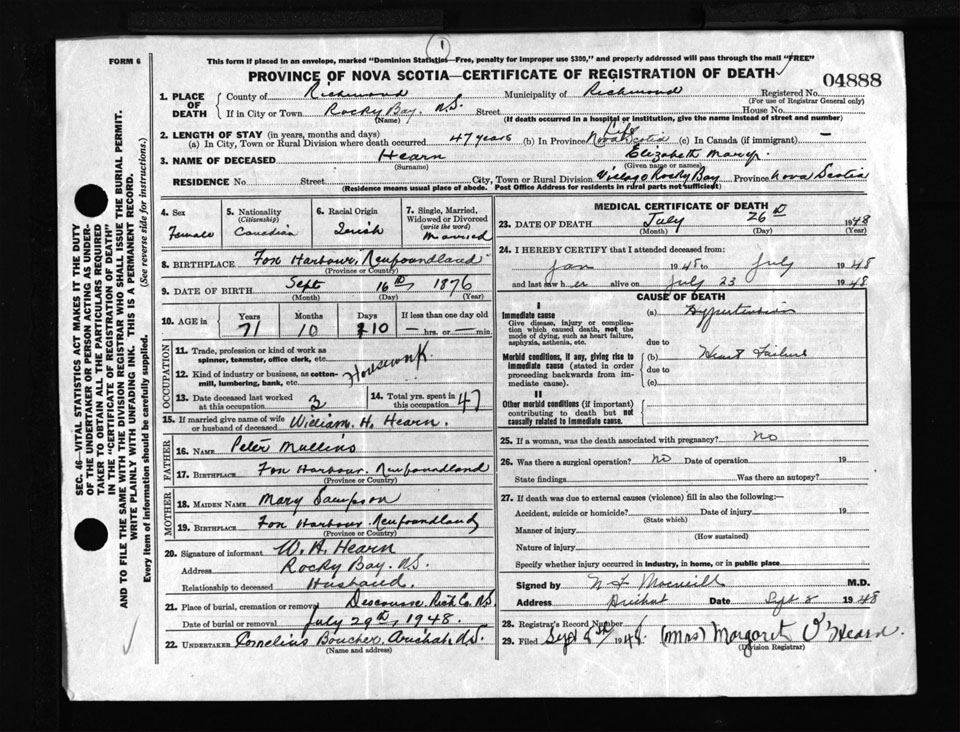 1
FORM 6
This form if placed in an envelope, marked "Dominion Statistics—Free, penalty for improper use $300," and properly addressed will pass through the mail "FREE"
PROVINCE OF NOVA SCOTIA—CERTIFICATE OF REGISTRATION OF DEATH
04888
1. PLACE OF DEATH
County of Richmond Municipality of Richmond Registered No.
(For use of Registrar General only)
If in City or Town Rocky Bay. N.S. Street House No.
(Name) (If death occurred in a hospital or institution, give the name instead of street and number)
2. LENGTH OF STAY (in years, months and days)
(a) In City, Town or Rural Division where death occurred 47 years (b) In Province Life Nova Scotia (c) In Canada (if immigrant) —
3. NAME OF DECEASED Hearn Elizabeth Mary.
(Surname) (Given name or names)
RESIDENCE No. Street City, Town or Rural Division Village Rocky Bay Province Nova Scotia
(Residence means usual place of abode. Post Office Address for residents in rural parts not sufficient)
4. Sex Female
5. Nationality (Citizenship) Canadian
6. Racial Origin Irish
7. Single, Married, Widowed or Divorced (write the word) Married
8. BIRTHPLACE Fox Harbour, Newfoundland
(Province or Country)
9. DATE OF BIRTH Sept 16th 1876
(Month) (Day) (Year)
10. AGE in Years 71 Months 10 Days 10 If less than one day old — hrs. or — min.
OCCUPATION
11. Trade, profession or kind of work as spinner, teamster, office clerk, etc.
12. Kind of industry or business, as cotton-mill, lumbering, bank, etc.
Housework.
13. Date deceased last worked at this occupation 3
14. Total yrs. spent in this occupation 47
15. If married give name of wife or husband of deceased William. H. Hearn.
FATHER
16. NAME Peter Mullins
17. BIRTHPLACE Fox Harbour. Newfoundland
(Province or Country)
MOTHER
18. MAIDEN NAME Mary Sampson
19. BIRTHPLACE Fox Harbour. Newfoundland
(Province or Country)
20. Signature of informant W. H. Hearn
Address Rocky Bay. N.S.
Relationship to deceased Husband.
21. Place of burial, cremation or removal Descousse Rich Co. N.S.
Date of burial or removal July 29th, 1948.
22. UNDERTAKER Cornelius Boucher, Arichat N.S.
(Name and address)
MEDICAL CERTIFICATE OF DEATH
23. DATE OF DEATH July 26th 1948
(Month) (Day) (Year)
24. I HEREBY CERTIFY that I attended deceased from:
Jan 1948 to July 1948
and last saw h er alive on July 23 1948
CAUSE OF DEATH
I
Immediate cause
Give disease, injury or complication which caused death, not the mode of dying, such as heart failure, asphyxia, asthenia, etc.
(a) Hypertension
due to
Morbid conditions, if any, giving rise to immediate cause (stated in order proceeding backwards from immediate cause).
(b) Heart Failure
due to
(c)
II
Other morbid conditions (if important) contributing to death but not causally related to immediate cause.
25. If a woman, was the death associated with pregnancy? No
26. Was there a surgical operation? No Date of operation 19
State findings Was there an autopsy?
27. If death was due to external causes (violence) fill in also the following:—
Accident, suicide or homicide? Date of injury 19
(State which)
Manner of injury
(How sustained)
Nature of injury
Specify whether injury occurred in industry, in home, or in public place
Signed by M.D.
Address Arichat Date Sept 8 1948
28. Registrar's Record Number
29. Filed Sept 8th 1948. (Mrs) Margaret O'Hearn.
(Division Registrar)
SEC. 46—VITAL STATISTICS ACT MAKES IT THE DUTY
OF THE UNDERTAKER OR PERSON ACTING AS UNDER-
TAKER TO OBTAIN ALL THE PARTICULARS REQUIRED
IN THE "CERTIFICATE OF REGISTRATION OF DEATH"
AND TO FILE THE SAME WITH THE DIVISION REGISTRAR WHO SHALL ISSUE THE BURIAL PERMIT.
WRITE PLAINLY WITH UNFADING INK. THIS IS A PERMANENT RECORD.
Every item of information should be carefully supplied. (See reverse side for instructions.)